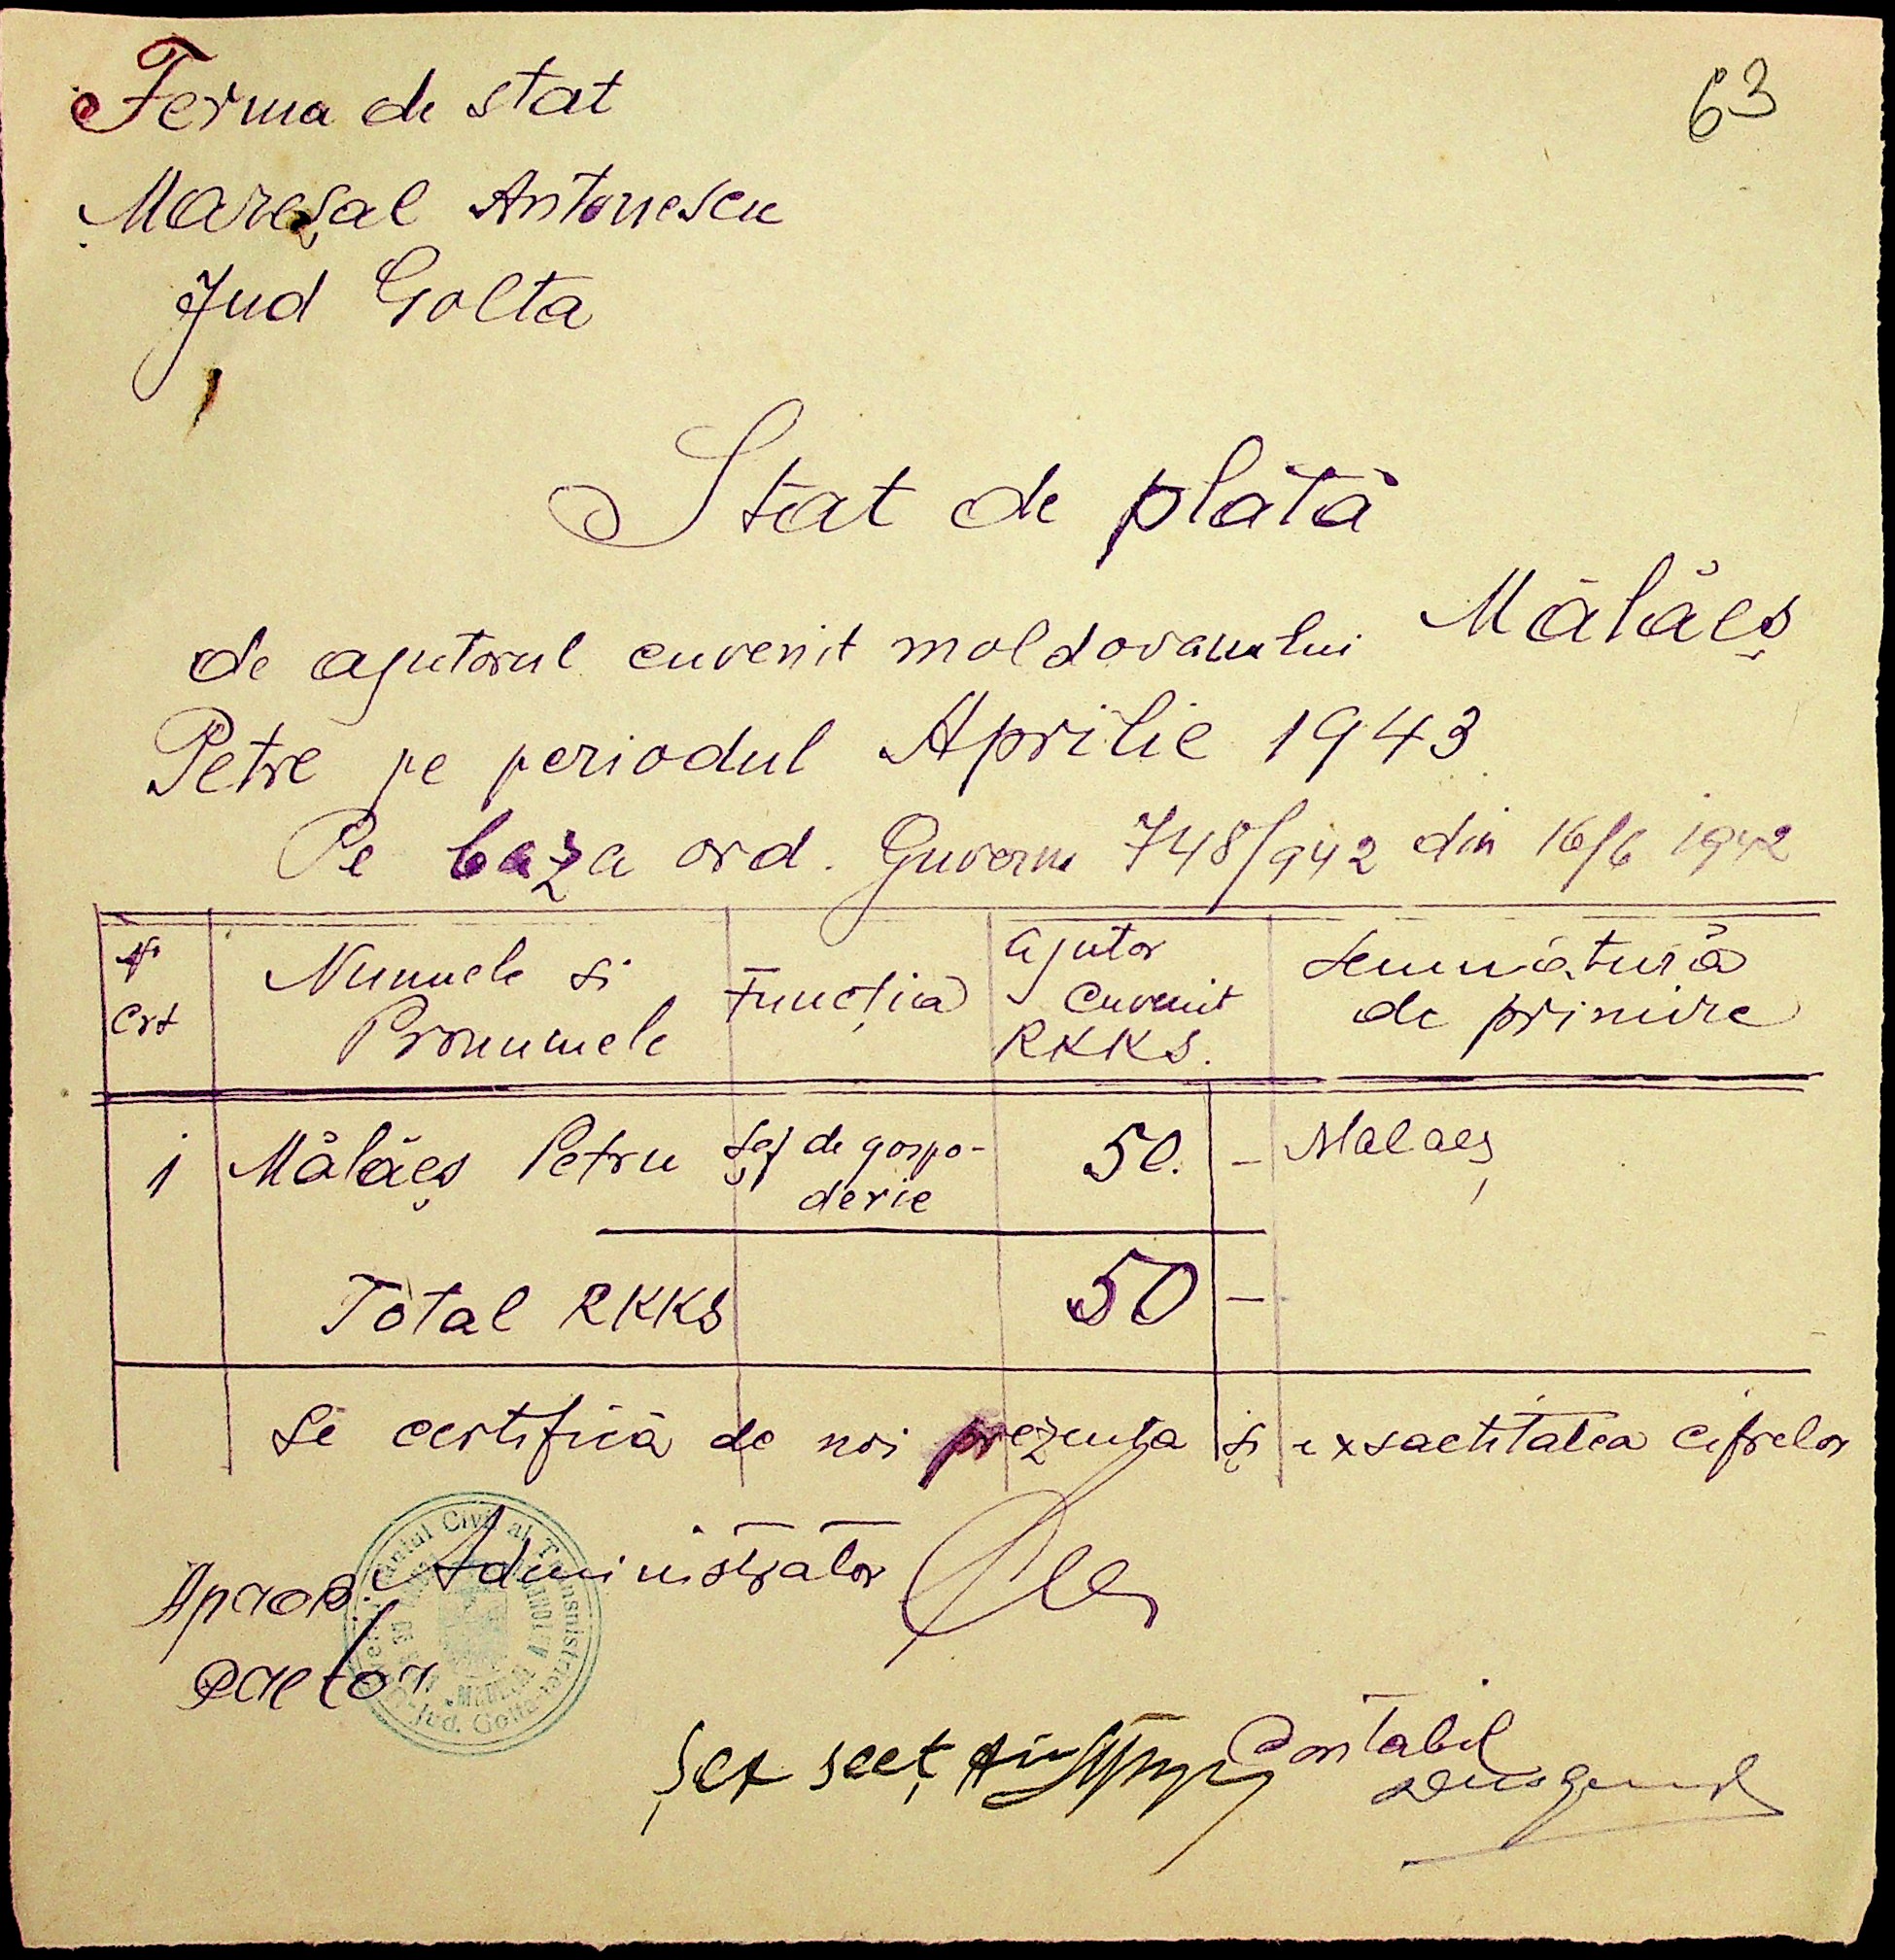 63
Ferma de stat
Mareșal Antonescu
Jud Golta
Stat de plată
de ajutorul cuvenit moldovanului Mălăeș
Petre pe periodul Aprilie 1943
Pe baza ord. Guvern 748/942 din 16/6 1942
Nr Crt | Numele si Pronumele | Funcția | Ajutor Cuvenit RKKS. | Semnătură de primire
1 | Mălăeș Petru | Șef de gospo-derie | 50. | - | Malaeș
Total RKKS | 50 | -
Se certifică de noi prezența și exsactitatea cifrelor
Administrator
Aprob
Pretor
Civil al Transnistriei
Jud. Golta
Șef secț
Contabil